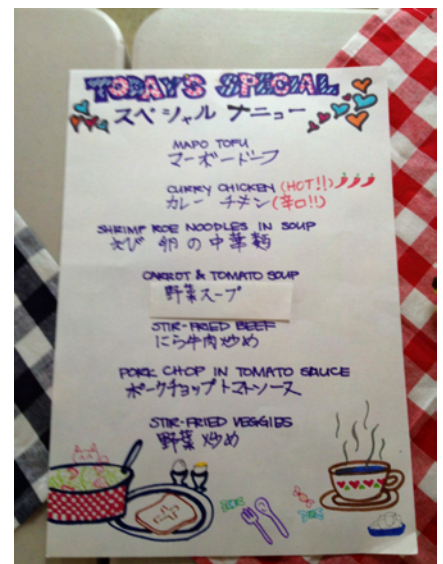 TODAY'S SPECIAL
スペシャル ナニュー
MAPO TOFU
マーボードーフ
CURRY CHICKEN (HOT!!)
カレー チキン (辛口!!)
SHRIMP ROE NOODLES IN SOUP
えび 卵 の 中華麺
CARROT & TOMATO SOUP
野菜スープ
STIR-FRIED BEEF
にら牛肉炒め
PORK CHOP IN TOMATO SAUCE
ポークチョップトマトソース
STIR-FRIED VEGGIES
野菜 炒め